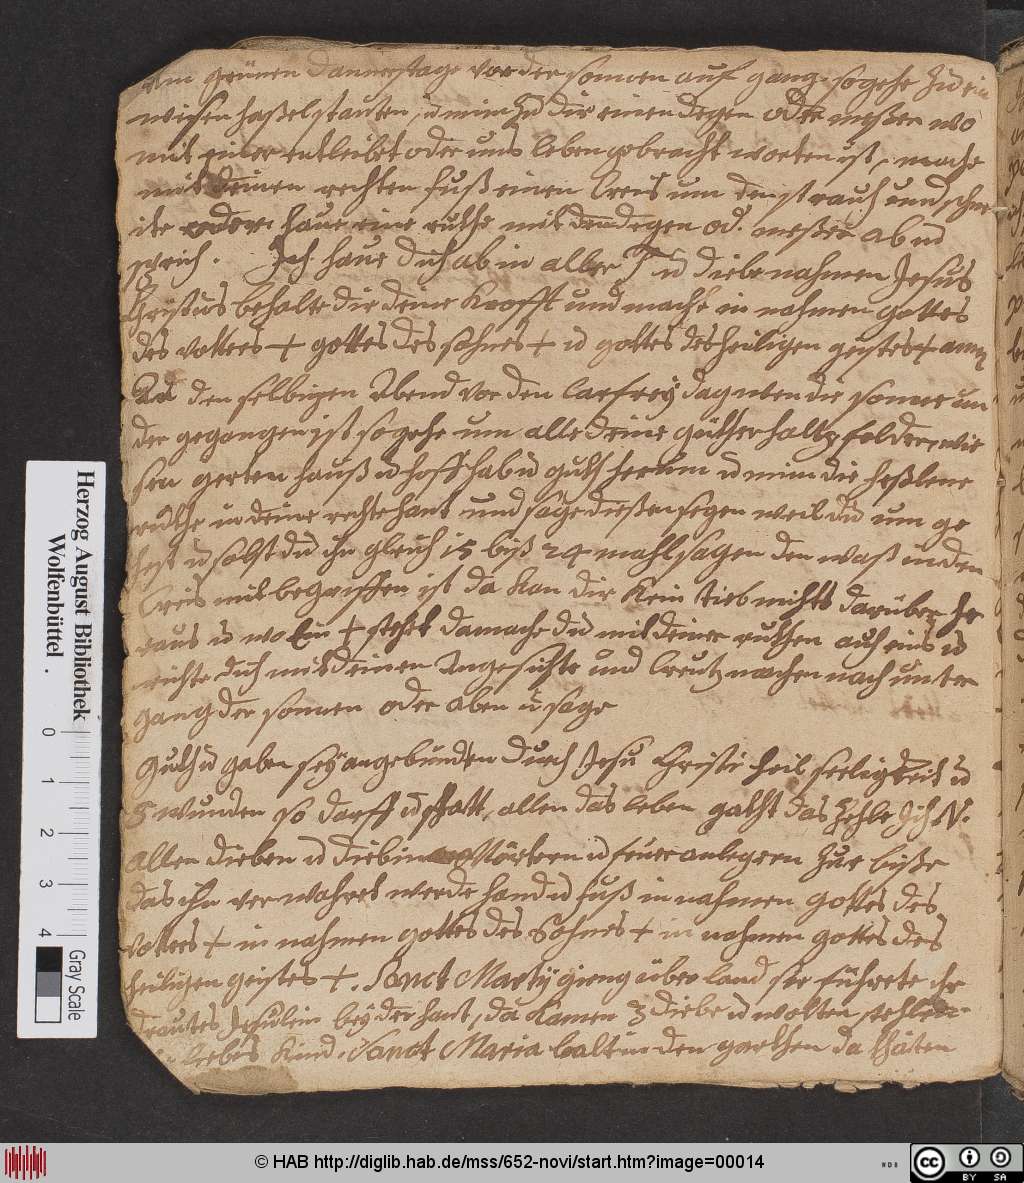 Am grünen dannerstage vor der sonnen auf gang, so gehe zu ein
weisen haßelstauten, u nim zu dir einen degen oder meßer wo
mit einer entleibet oder ums leben gebracht worten ist, mache
mit deinen rechten fuß einen Creis um den strauch und schne
ite oder haue eine ruthe mit dem degen od. meßer ab und
sprich. Ich haue dich ab in aller T u diebe nahmen Jesus
Christus behalte dir deine Krafft und mache in nahmen gottes
des vatters + gottes des sohnes + u gottes des heiligen geistes + amen
den selbigen Abend vor den Carfreÿ dag wen die sonne un
der gegangen ist so gehe um alle deine güther holtz felder, wie
sen gerten hauß u hoff hab u guth herum u nim die heßlene
ruthe in deine rechte hant und sage dießen segen weil du um ge
hest u solst du ihn gleich 15 biß 24 mahl sagen den waß in den
Creis mit begriffen ist da kan dir kein dieb nichts darüber he
raus u wo Ein + stehet da mache du mit deiner ruthen auch eins u
richte dich mit deinen Angesichte und Creutz machen nach unter
gang der sonnen oder aben u sage
Guth u gaben seÿ angebunden durch Jesu Christi heil seeligkeit u
5 wunden so darff u statt, allen das leben gatht das Zehle Ich N.
allen dieben u diebin Mörtern u feuer anlegern zur biße
das ihn verwahret werde hand u fuß in nahmen gottes des
vatters + in nahmen gottes des Sohnes + in nahmen gottes des
heiligen geistes +. Sanct Martÿ gieng über land sie führete ihr
trautes Jesulein beÿ der hant, da kamen 3 diebe u wolten stehlen
liebes Kind. Sanct Maria balt in den garthen da thäten
Herzog August Bibliothek
Wolfenbüttel
0 1 2 3 4
Gray Scale
© HAB http://diglib.hab.de/mss/652-novi/start.htm?image=00014
WDB
cc BY SA